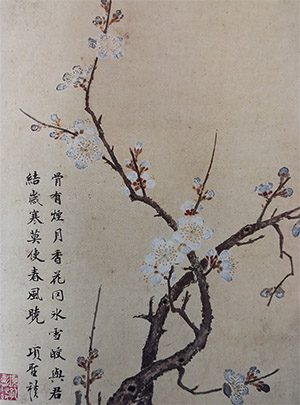 骨有煙月香花同氷雪皎與君
結歲寒莫使春風曉 項聖謨